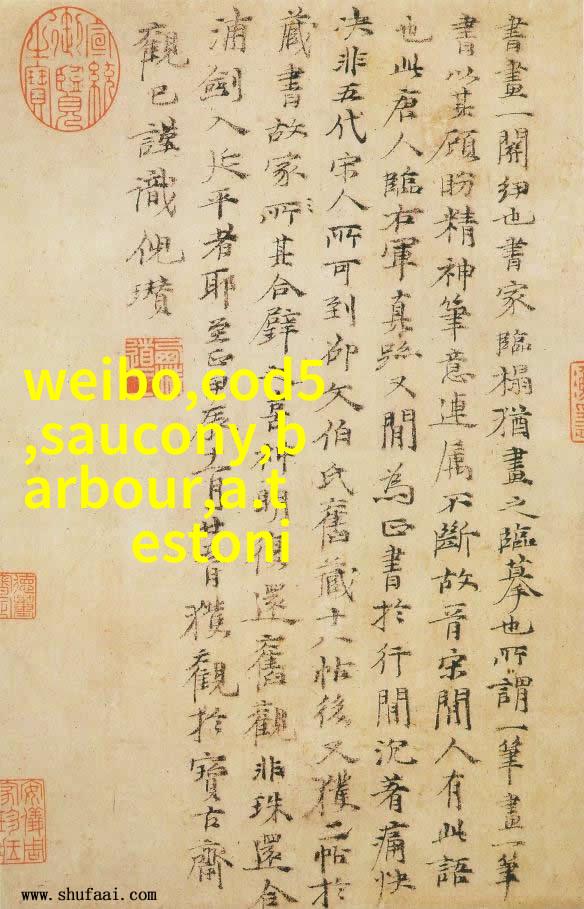 書畫一關紐也書家臨榻猶畫之臨摹也所謂一筆畫一筆
書以其顧盼精神筆意連属不斷故晉宋間人有此語
也此唐人臨右軍真跡又間為正書於行間沉著痛快
决非五代宋人所可到邵文伯氏舊藏十八帖後又獲二帖於
蔵書故家所其合璧神明還舊觀非珠還合
浦劍入延平者耶至正月廿日獲觀於寶古齋
觀已謹識倪瓚
宣統御覽之寶
安儀周家珍藏
weibo,cod5
,saucony,b
arbour,a.t
estoni
www.shufaai.com